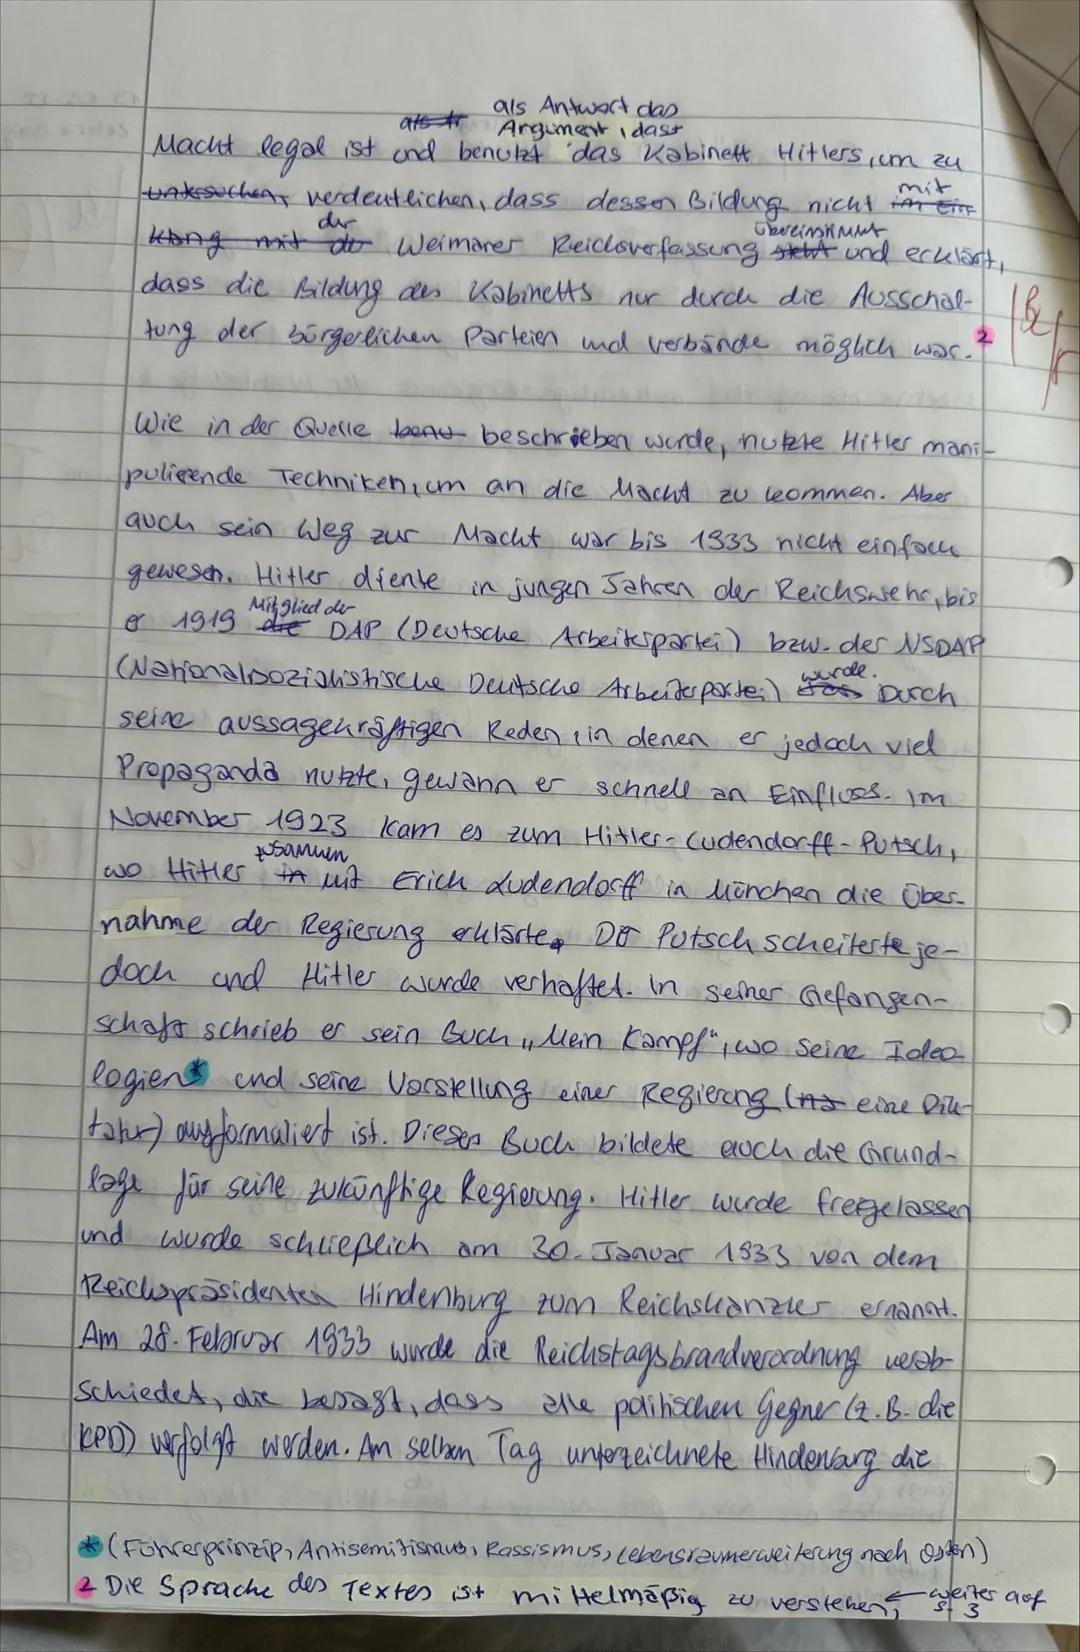 als Antwort das
Argument, dass
Macht legal ist und benutzt das Kabinett Hitlers, um zu
untersuchen, verdeutlichen, dass dessen Bildung nicht im Ein mit
klang mit de der Weimarer Reichsverfassung steht übereinstimmt und erklärt,
dass die Bildung des Kabinetts nur durch die Ausschal-
tung der bürgerlichen Parteien und Verbände möglich war. 2
Wie in der Quelle benu beschrieben wurde, nutzte Hitler mani-
pulierende Techniken, um an die Macht zu kommen. Aber
auch sein Weg zur Macht war bis 1933 nicht einfach
gewesen. Hitler diente in jungen Jahren der Reichswehr, bis
er 1919 die Mitglied der DAP (Deutsche Arbeiterpartei) bzw. der NSDAP
(Nationalsozialistische Deutsche Arbeiterpartei) wurde. Durch
seine aussagekräftigen Reden, in denen er jedoch viel
Propaganda nutzte, gewann er schnell an Einfluss. Im
November 1923 kam es zum Hitler-Ludendorff-Putsch,
wo Hitler zusammen mit Erich Ludendorff in München die Über-
nahme der Regierung erklärte. Der Putsch scheiterte je-
doch und Hitler wurde verhaftet. In seiner Gefangen-
schaft schrieb er sein Buch „Mein Kampf", wo seine Ideo
logien* und seine Vorstellung einer Regierung (eine Dik-
tatur) ausformuliert ist. Dieses Buch bildete auch die Grund-
lage für seine zukünftige Regierung. Hitler wurde freigelassen
und wurde schließlich am 30. Januar 1933 von dem
Reichspräsidenten Hindenburg zum Reichskanzler ernannt.
Am 28. Februar 1933 wurde die Reichstagsbrandverordnung verab-
schiedet, die besagt, dass alle politischen Gegner (z.B. die
KPD) verfolgt werden. Am selben Tag unterzeichnete Hindenburg die
* (Führerprinzip, Antisemitismus, Rassismus, Lebensraumerweiterung nach Osten)
2 Die Sprache des Textes ist mittelmäßig zu verstehen, ← weiter auf
S. 3